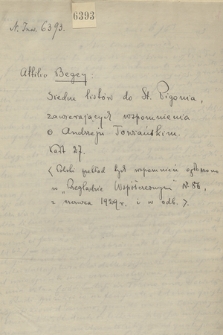 6393
N. Inw. 6393.
Attilio Begey:
Siedm listów do St. Pigonia,
zawierających wspomnienia
o Andrzeju Towiańskim.
Kart 27.
(Polski przekład tych wspomnień ogłoszono
w „Przeglądzie Współczesnym" Nr.
z marca 1929 r. i w odb.).